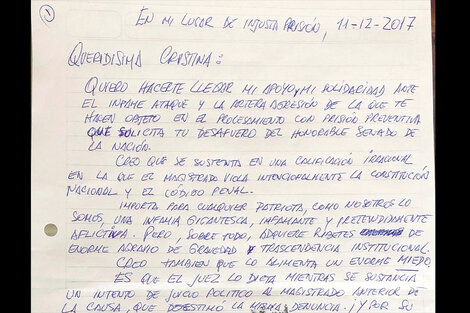 1
EN MI LUGAR DE INJUSTA PRISIÓN, 11-12-2017
QUERIDISIMA CRISTINA:
QUIERO HACERTE LLEGAR MI APOYO, MI SOLIDARIDAD ANTE
EL INFAME ATAQUE Y LA ARTERA AGRESIÓN DE LA QUE TE
HACEN OBJETO EN EL PROCESAMIENTO CON PRISIÓN PREVENTIVA
QUE SOLICITA TU DESAFUERO DEL HONORABLE SENADO DE
LA NACIÓN.
CREO QUE SE SUSTENTA EN UNA CALIFICACIÓ IRRACIONAL
EN LA QUE EL MAGISTRADO VIOLA INTENCIONALMENTE LA CONSTITUCIÓN
NACIONAL Y EL CÓDIGO PENAL.
IMPORTA PARA CUALQUIER PATRIOTA, COMO NOSOTROS LO
SOMOS, UNA INFAMIA GIGANTESCA, INFAMANTE Y PRETENDIDAMENTE
AFLICTIVA. PERO, SOBRE TODO, ADQUIERE RIBETES DE
ENORME AGRAVIO DE GRAVEDAD Y TRASCENDENCIA INSTITUCIONAL.
CREO TAMBIEN QUE LO ALIMENTA UN ENORME MIEDO.
ES QUE EL JUEZ LO DICTA MIENTRAS SE SUSTANCIA
UN INTENTO DE JUICIO POLITICO AL MAGISTRADO ANTERIOR DE
LA CAUSA, QUE DESESTIMÓ LA MISMA DENUNCIA. ¡Y POR SU